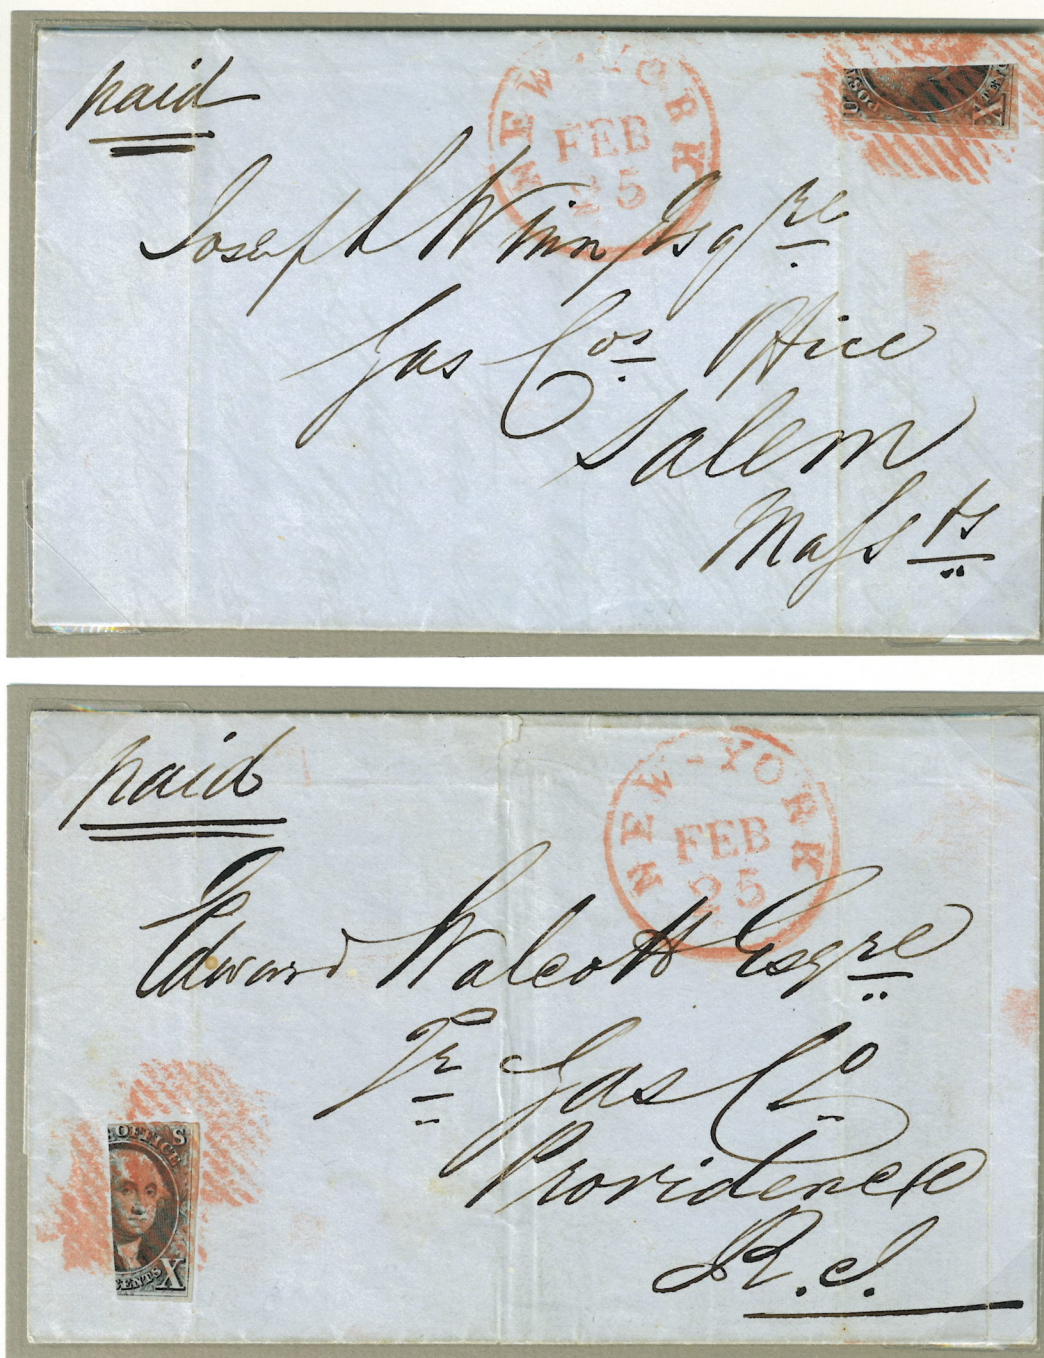 paid
NEW-YORK
FEB
25
POST
X TEN
X
Joseph Winn Esqre
Gas Cos Office
Salem
Massts
paid
NEW-YORK
FEB
25
Edward Walcott Esqre
Tr Gas Co
Providence
R.I.
OFFICE S
CENTS X